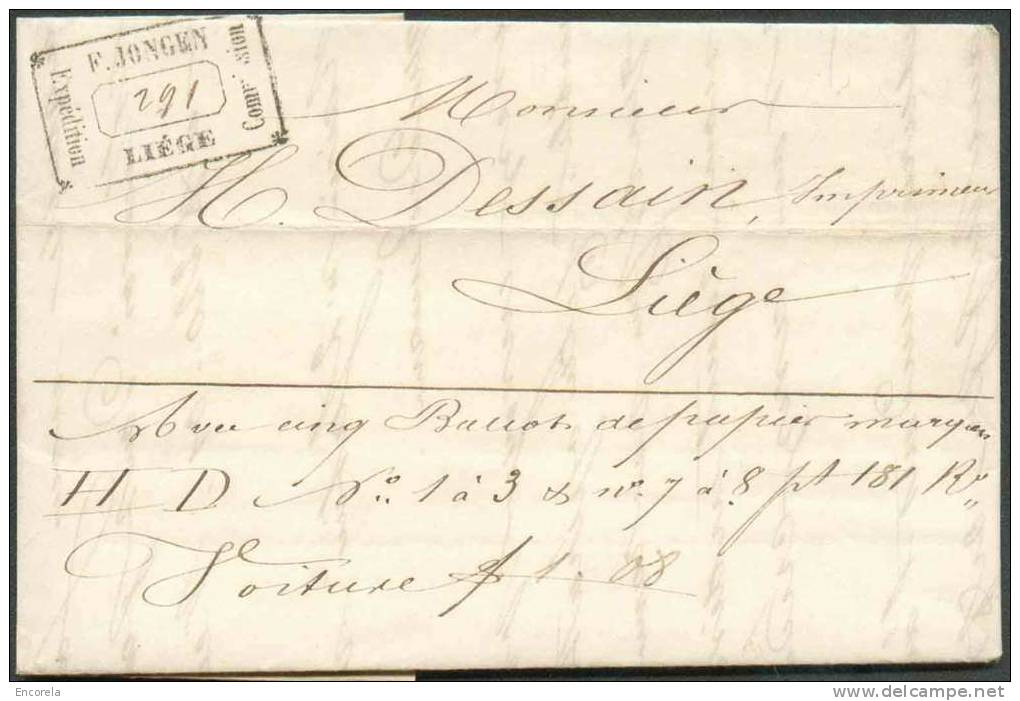 F. JONGEN
Expédition
291
Commission
LIÉGE
Monsieur
H. Dessain, Imprimeur
Liège
Avec cinq Ballots de papier marqués
H D Nos. 1 à 3 & no. 7 à 8 pt 181 Ko
Voiture f 1.08
Encorela
www.delcampe.net